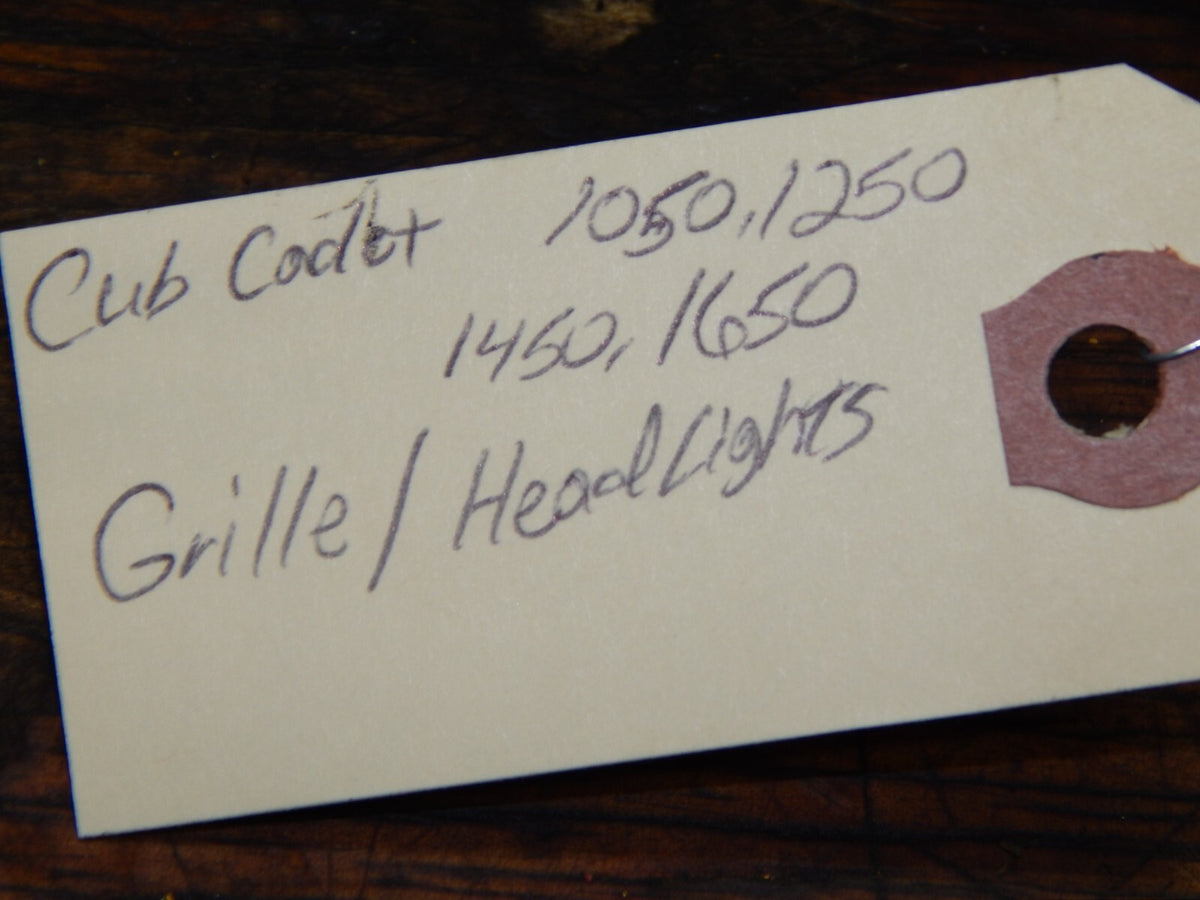 Cub Cadet 1050, 1250
1450, 1650
Grille/HeadLights